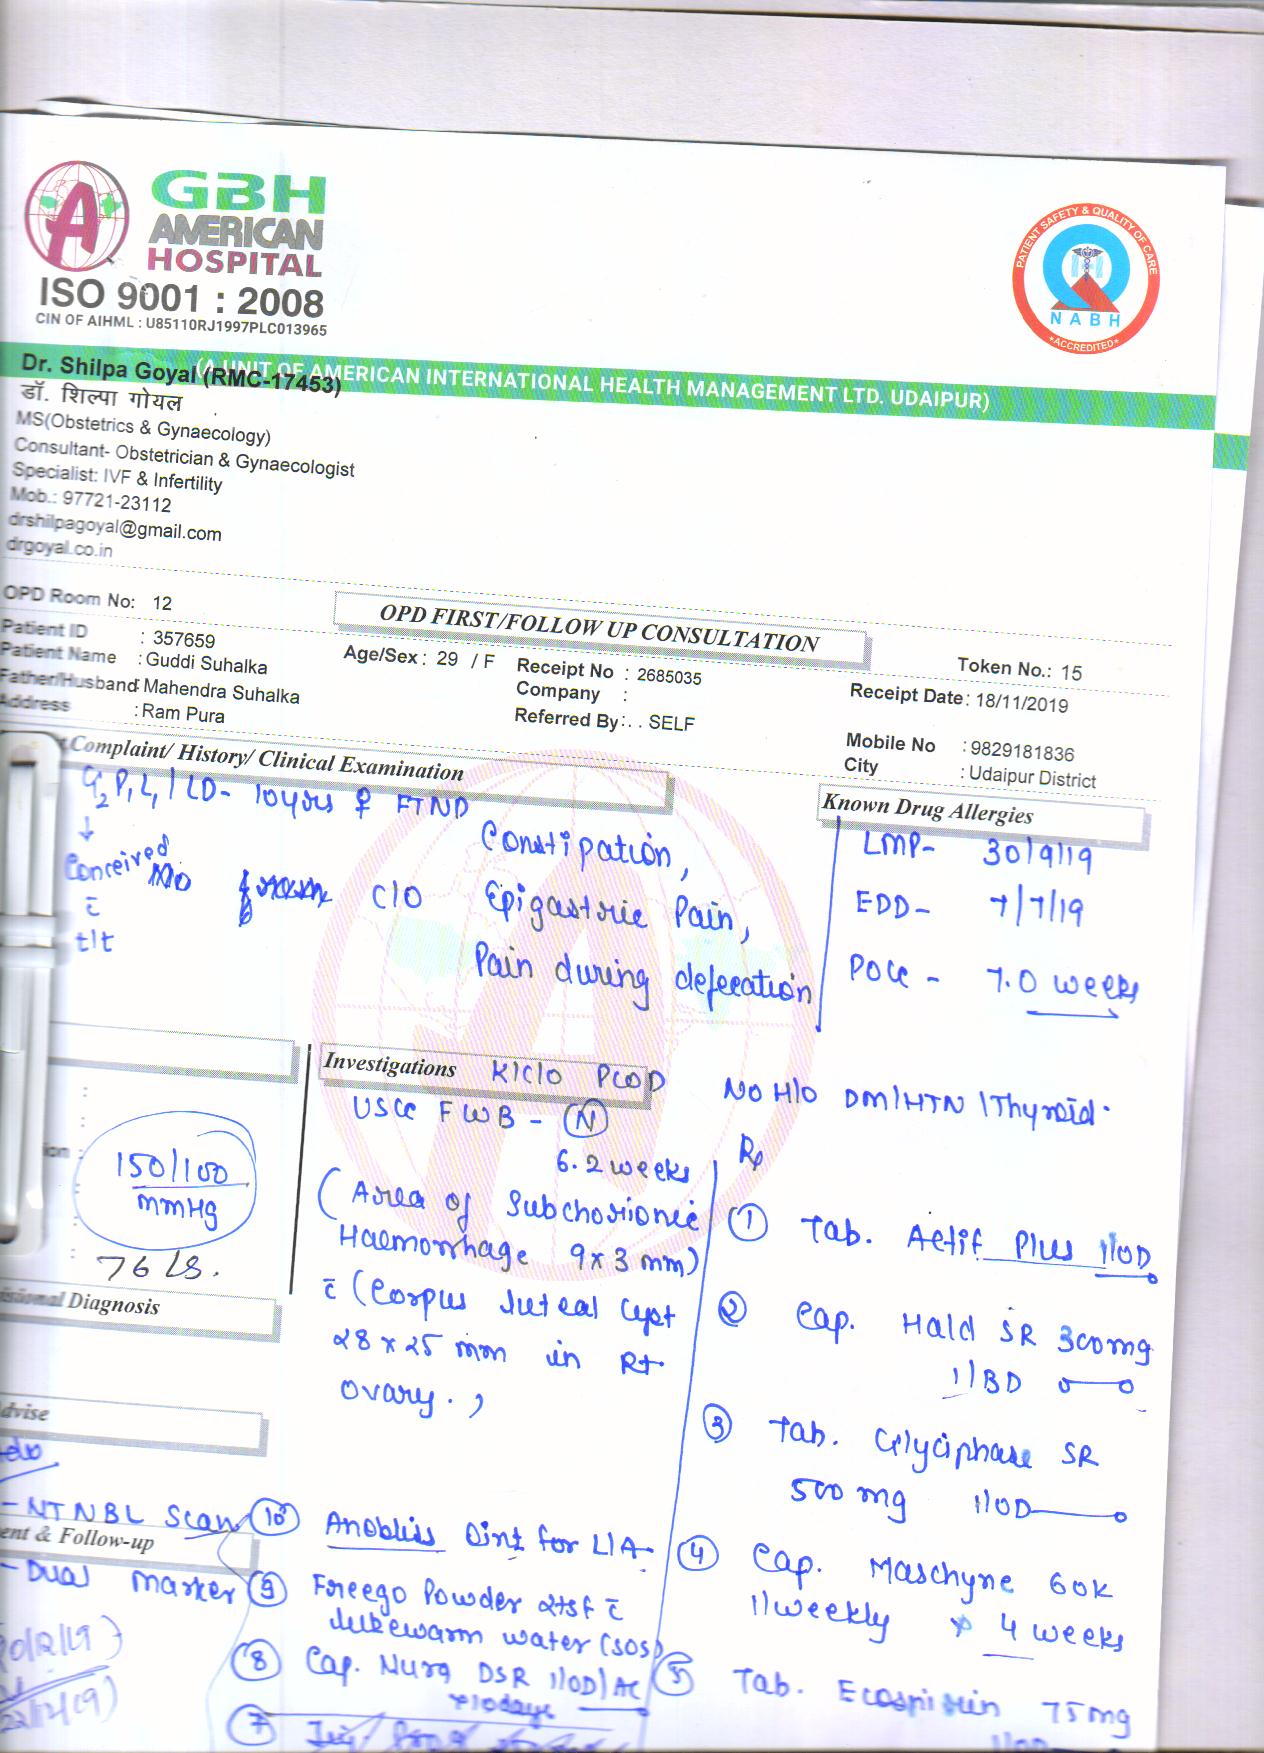 GBH
AMERICAN
HOSPITAL
ISO 9001 : 2008
CIN OF AIHML : U85110RJ1997PLC013965
PATIENT SAFETY & QUALITY OF CARE
NABH
ACCREDITED
(A UNIT OF AMERICAN INTERNATIONAL HEALTH MANAGEMENT LTD. UDAIPUR)
Dr. Shilpa Goyal (RMC-17453)
डॉ. शिल्पा गोयल
MS(Obstetrics & Gynaecology)
Consultant- Obstetrician & Gynaecologist
Specialist: IVF & Infertility
Mob.: 97721-23112
drshilpagoyal@gmail.com
drgoyal.co.in
OPD Room No: 12
OPD FIRST/FOLLOW UP CONSULTATION
Token No.: 15
Patient ID : 357659
Patient Name : Guddi Suhalka
Father/Husband : Mahendra Suhalka
Address : Ram Pura
Age/Sex : 29 / F
Receipt No : 2685035
Company :
Referred By : . . SELF
Receipt Date : 18/11/2019
Mobile No : 9829181836
City : Udaipur District
Complaint/ History/ Clinical Examination
G2P1L1 / LD- 10 yrs ♀ FTND
↓
Conceived
c̄
t/t
c/o Constipation,
Epigastric Pain,
Pain during defecation
Known Drug Allergies
LMP- 30/9/19
EDD- 7/7/19
POG - 7.0 weeks
150/100
mmHg
76
Investigations K/C/O PCOD
No H/O DM/HTN/Thyroid.
USG FWB - N
6.2 weeks
(Area of Subchorionic
Haemorrhage 9x3 mm)
c̄ (Corpus luteal cyst
28 x 25 mm in Rt
ovary.)
Diagnosis
Advise
- NTNBL Scan
& Follow-up
- Dual marker
Rx
① Tab. Actif Plus 1/OD
② Cap. Hald SR 300mg
1/BD
③ Tab. Glyciphase SR
500 mg 1/OD
④ Cap. Maschyne 60K
1/weekly x 4 weeks
⑤ Tab. Ecosprin 75mg
1/OD
⑦
⑧ Cap. Nura DSR 1/OD/AC
x 10 days
⑨ Freego Powder 2tsf c̄
lukewarm water (SOS)
⑩ Anobliss Oint for L/A